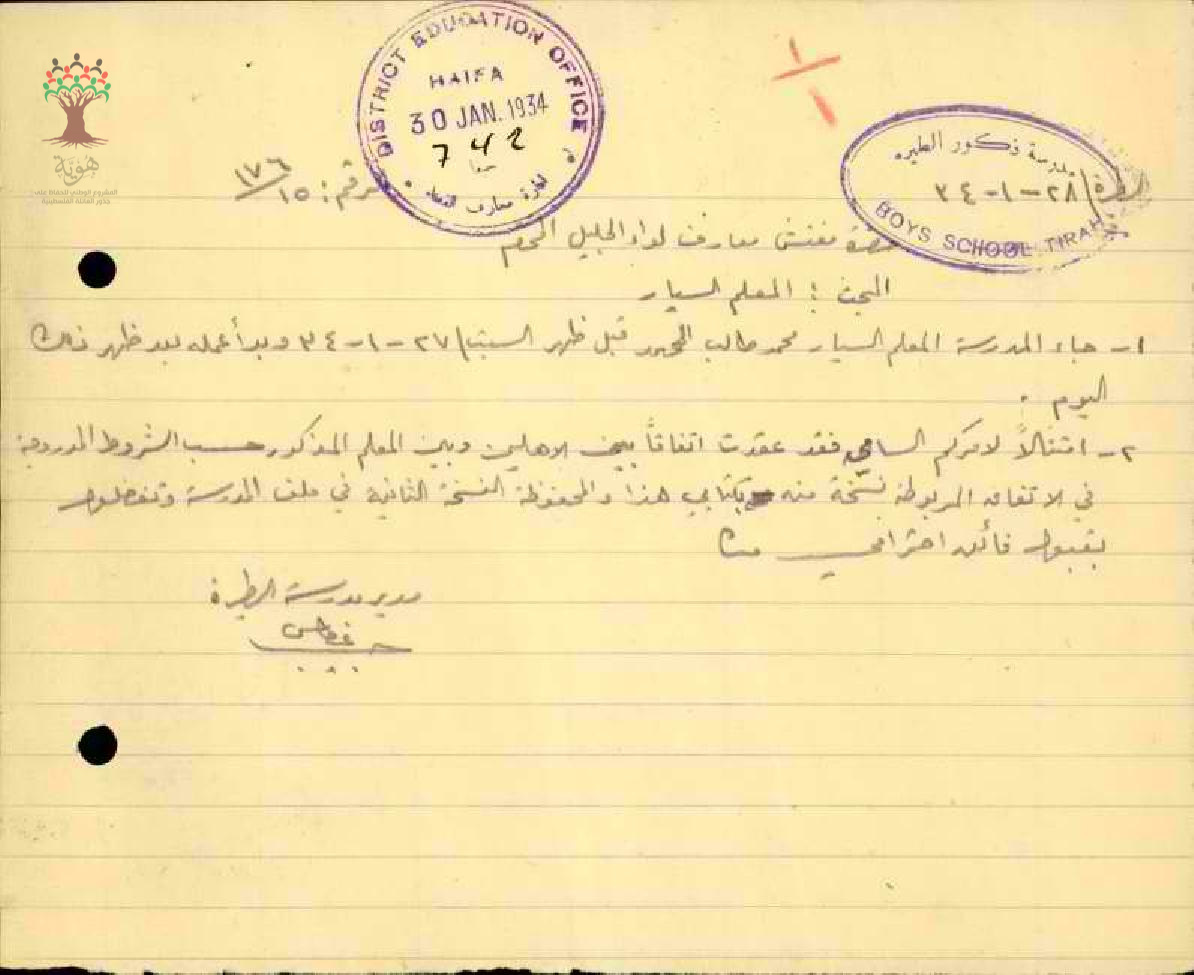 DISTRICT EDUCATION OFFICE
HAIFA
30 JAN. 1934
742
هوية
المشروع الوطني للحفاظ على
جذور العائلة الفلسطينية
مدرسة ذكور الطيره
الطيرة ٢٨-١-٣٤
BOYS SCHOOL TIRAH
رقم: ١٥/١٧٦
حضرة مفتش معارف لواء الجليل المحترم
البحث : المعلم السيار
١- جاء المدرسة المعلم السيار محمد طالب قبل ظهر السبت ٢٧-١-٣٤ وبدأ عمله بعد ظهر ذلك
اليوم .
٢- امتثالاً لامركم السامي فقد عقدت اتفاقاً بين الاهلين وبين المعلم المذكور حسب الشروط المدروجة
في الاتفاق المربوطة نسخة منه بكتابي هذا والمحفوظة النسخة الثانية في ملف المدرسة وتفضلوا
بقبول فائق احترامي
مدير مدرسة الطيرة